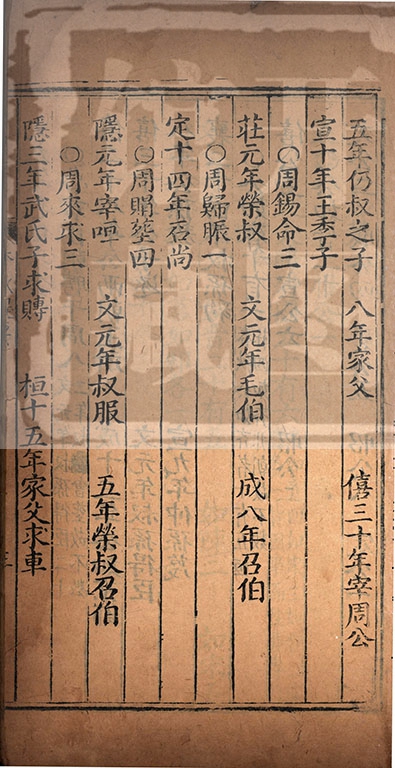 五年仍叔之子　八年家父　僖三十年宰周公
宣十年王季子
〇周錫命三
莊元年榮叔　文元年毛伯　成八年召伯
〇周歸脤一
定十四年石尚
〇周賵葬四
隱元年宰咺　文元年叔服　五年榮叔召伯
〇周來求三
隱三年武氏子求賻　桓十五年家父求車